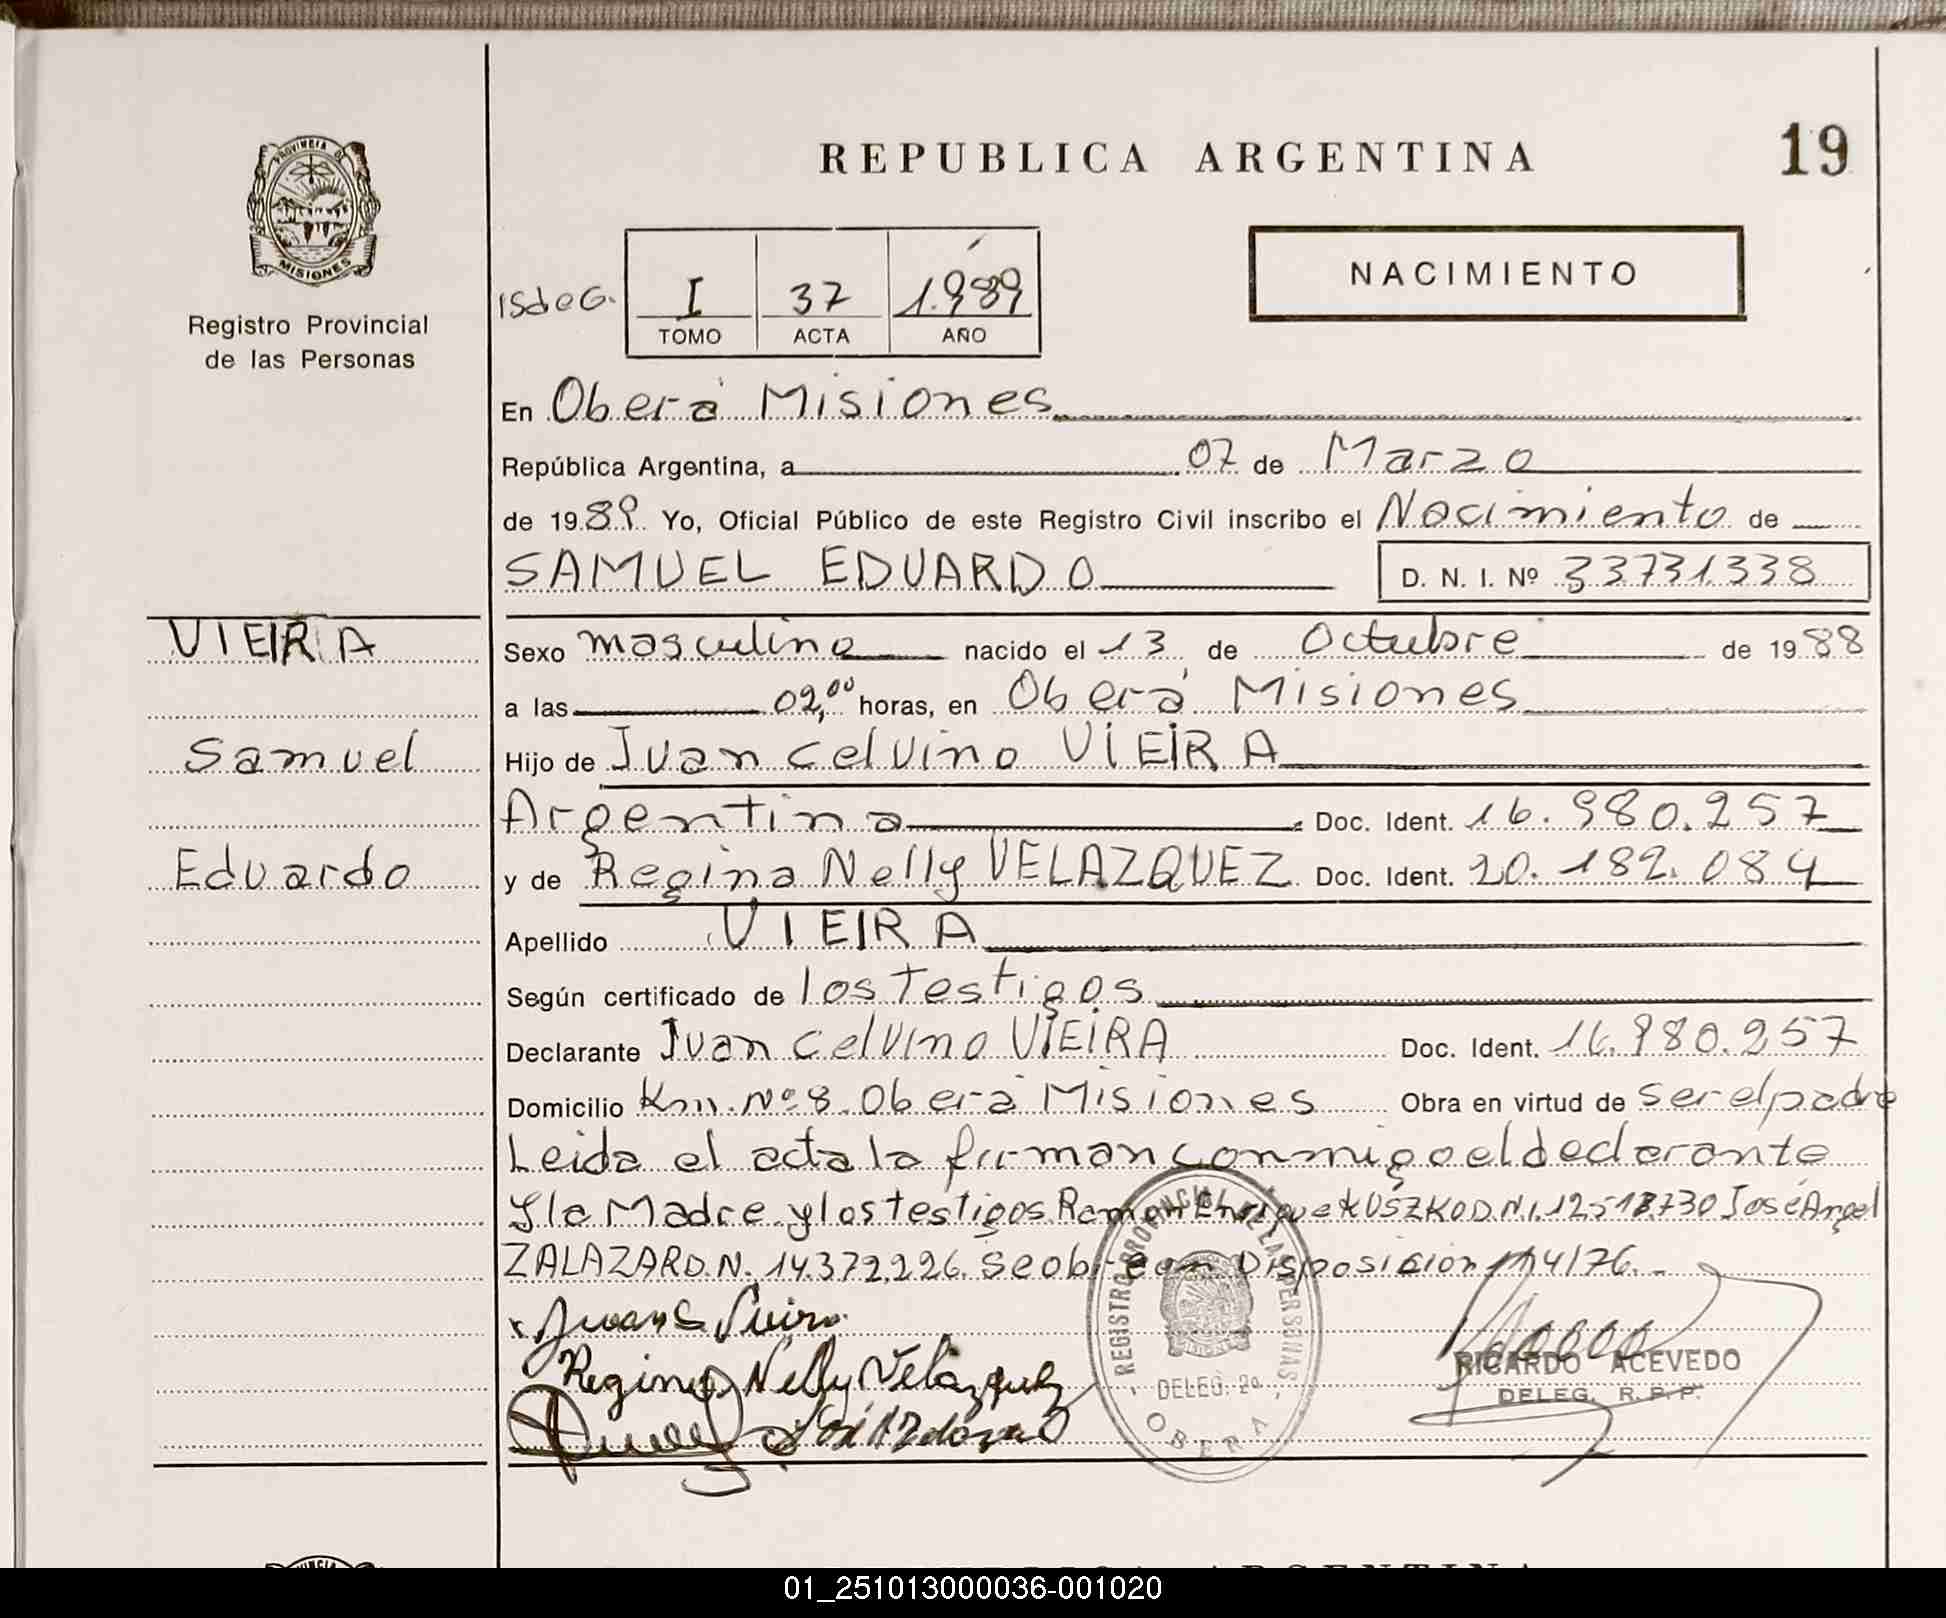 REPUBLICA ARGENTINA
19
PROVINCIA DE
MISIONES
Registro Provincial
de las Personas
NACIMIENTO
ISdeG. I 37 1.989
TOMO ACTA AÑO
En Oberá Misiones
República Argentina, a 07 de Marzo
de 1989 Yo, Oficial Público de este Registro Civil inscribo el Nacimiento de
SAMUEL EDUARDO D. N. I. Nº 33731338
VIEIRA
Samuel
Eduardo
Sexo masculino nacido el 13 de Octubre de 1988
a las 02,00 horas, en Oberá Misiones
Hijo de Juan Celvino VIEIRA
Argentina Doc. Ident. 16.980.257
y de Regina Nelly VELAZQUEZ Doc. Ident. 20.182.084
Apellido VIEIRA
Según certificado de los Testigos
Declarante Juan Celvino VIEIRA Doc. Ident. 16.980.257
Domicilio Km. Nº 8. Oberá Misiones Obra en virtud de ser el padre
Leida el acta la firman conmigo el declarante
y la Madre y los testigos Ramon Enrique KUSZKO D.N.I. José Angel
ZALAZAR D.N. 14.372.226. Se obró con Disposicion 114/76.
Juan C Vieira
Regina Nelly Velazquez
REGISTRO PROVINCIAL DE LAS PERSONAS
DELEG. 2ª
OBERA
RICARDO ACEVEDO
DELEG. R. P. P.
REPUBLICA ARGENTINA
01_251013000036-001020